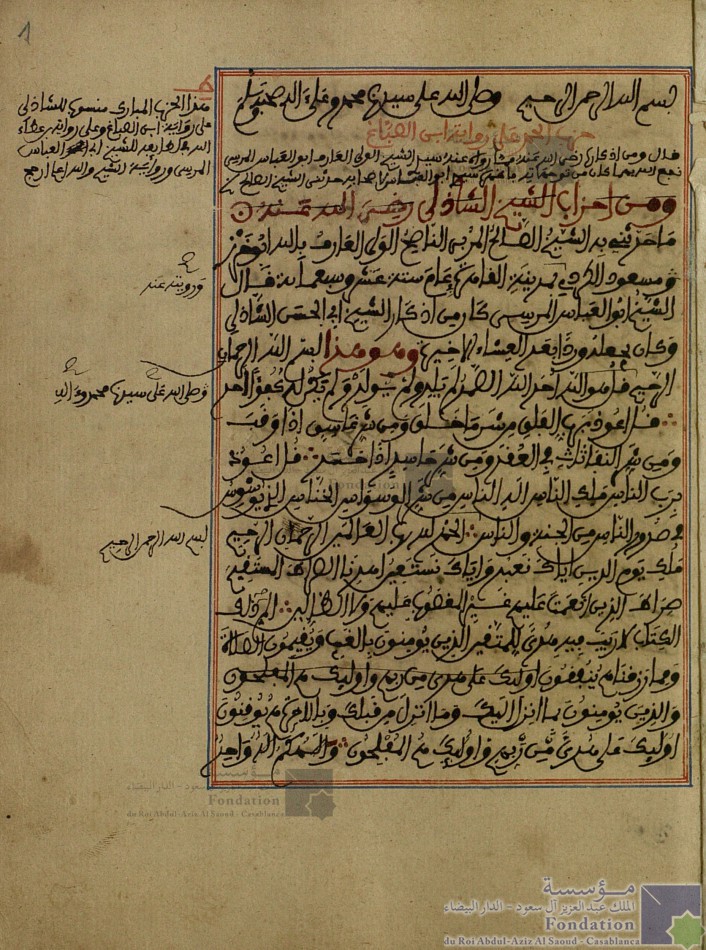 بسم الله الرحمن الرحيم وصلى الله على سيدنا محمد وعلى آله وصحبه وسلم
حزب البحر على رواية ابن الصباغ
قال ومن اذكاره رضي الله عنه ما رواه عنه سيدي الشيخ الولي العارف ابو العباس المرسي
نفع الله به
ومن احزاب الشيخ الشاذلي رضي الله عنه
ما حدثني به الشيخ الصالح المربي الناصح الولي العارف بالله ابو عزيز
ومسعود الكردي بمدينة القاهرة عام ستة عشر وسبعمائة قال
الشيخ ابو العباس المرسي كان من اذكار الشيخ ابي الحسن الشاذلي
وكان يجعله وردا بعد العشاء الاخيرة وهو هذا بسم الله الرحمان
الرحيم قل هو الله احد الله الصمد لم يلد ولم يولد ولم يكن له كفؤا احد
قل اعوذ برب الفلق من شر ما خلق ومن شر غاسق اذا وقب
ومن شر النفاثات في العقد ومن شر حاسد اذا حسد قل اعوذ
برب الناس ملك الناس اله الناس من شر الوسواس الخناس الذي يوسوس
في صدور الناس من الجنة والناس الحمد لله رب العالمين الرحمان الرحيم
ملك يوم الدين اياك نعبد واياك نستعين اهدنا الصراط المستقيم
صراط الذين انعمت عليهم غير المغضوب عليهم ولا الضالين الم ذلك
الكتاب لا ريب فيه هدى للمتقين الذين يومنون بالغيب ويقيمون الصلاة
ومما رزقناهم ينفقون اوليك على هدى من ربهم واوليك هم المفلحون
والذين يومنون بما انزل اليك وما انزل من قبلك وبالاخرة هم يوقنون
اوليك على هدى من ربهم واوليك هم المفلحون والهكم اله واحد
هذا الحزب المبارك منسوب للشاذلي
على رواية ابن الصباغ وعلى رواية ابن عطاء
الله للشيخ ابي العباس
المرسي ورواية الشيخ والله ارجح
ورويته عنه
وصلى الله على سيدنا محمد وءاله
بسم الله الرحمن الرحيم
مؤسسة
الملك عبد العزيز آل سعود - الدار البيضاء
Fondation
du Roi Abdul-Aziz Al Saoud - Casablanca
مؤسسة
سعود - الدار البيضاء
Fondation
du Roi Abdul-Aziz Al Saoud - Casablanca